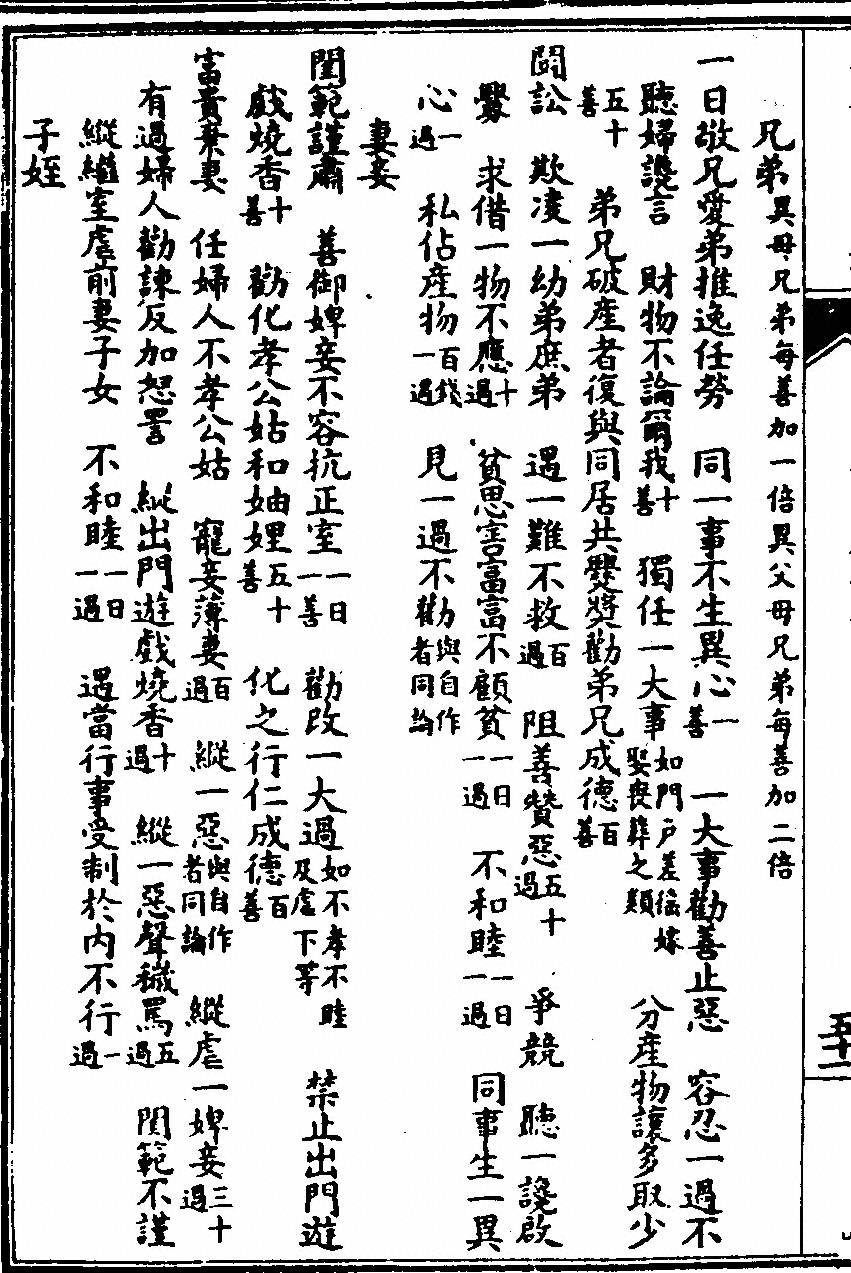 兄弟異母兄弟每善加一倍異父母兄弟每善加二倍
一日敬兄愛弟推逸任勞　同一事不生異心一善　一大事勸善止惡　容忍一過不
聽婦讒言　財物不論爾我十善　獨任一大事如門戶差徭嫁娶喪葬之類　分產物讓多取少
五十善　弟兄破產者復與同居共爨獎勸弟兄成德百善
鬪訟　欺凌一幼弟庶弟　遇一難不救百過　阻善贊惡五十過　爭競　聽一讒啟
釁　求借一物不應十過　貧思害富富不顧貧一日一過　不和睦一日一過　同事生一異
心一過　私佔產物百錢一過　見一過不勸與自作者同論
妻妾
閨範謹肅　善御婢妾不容抗正室一日一善　勸改一大過如不孝不睦及虐下等　禁止出門遊
戲燒香十善　勸化孝公姑和妯娌五十善　化之行仁成德百善
富貴棄妻　任婦人不孝公姑　寵妾薄妻百過　縱一惡與自作者同論　縱虐一婢妾三十過
有過婦人勸諫反加怒詈　縱出門遊戲燒香十過　縱一惡聲穢罵五過　閨範不謹
縱繼室虐前妻子女　不和睦一日一過　遇當行事受制於內不行一過
子姪
五十二